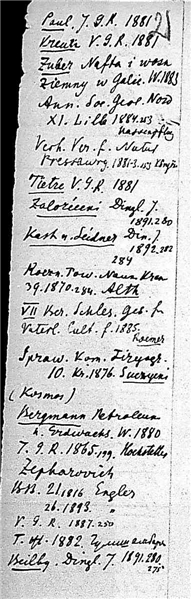 Paul. J. G. R. 1881
Kreutz V. G. R. 1881
Zuber Nafta i wosk
Ziemny w Galic. W. 1883
Ann. Soc. Geol. Nord
XI. Lille 1884.
Verh. Ver. f. Natur
Pressburg. 1881-3.
Tietze V. G. R. 1881
Zaloziecki Dingl. J.
1891. 280
Kast u. Seidner Din. J.
1892. 282
284
Rozpr. Tow. Nauk. Kra
39. 1870. 284. Alth
VII Ber. Schles. Ges. f.
Vaterl. Cult. f. 1885.
Roemer
Spraw. Kom. Fizyogr.
10. Kr. 1876.
(Kosmos)
Bergmann Petroleum
u. Erdwachs. W. 1880
J. G. R. 1865, 199. Hochstetter
Zepharovich
BB. 21. 1816 Engler
26. 1893. "
V. G. R. 1887. 250
1882.
Beilby. Dingl. J. 1891. 280.
275